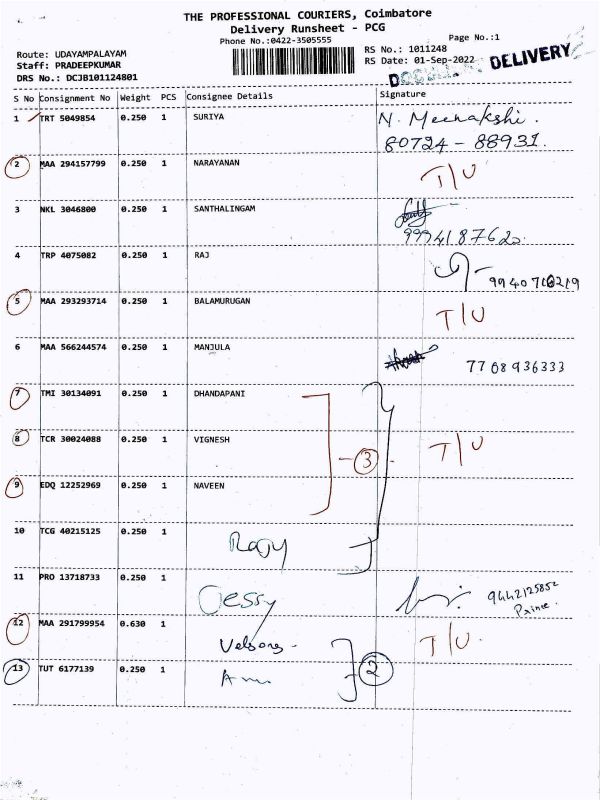 THE PROFESSIONAL COURIERS, Coimbatore
Delivery Runsheet - PCG
Phone No.:0422-3505555
Page No.:1
Route: UDAYAMPALAYAM
RS No.: 1011248
Staff: PRADEEPKUMAR
RS Date: 01-Sep-2022
DELIVERY
DRS No.: DCJB101124801
S No Consignment No Weight PCS Consignee Details Signature
1 TRT 5049854 0.250 1 SURIYA N. Meenakshi.
80724-88931
2 MAA 294157799 0.250 1 NARAYANAN T/U
3 NKL 3046800 0.250 1 SANTHALINGAM
9994187620
4 TRP 4075082 0.250 1 RAJ
5 MAA 293293714 0.250 1 BALAMURUGAN T/U
6 MAA 566244574 0.250 1 MANJULA 7708936333
7 TMI 30134091 0.250 1 DHANDAPANI
8 TCR 30024088 0.250 1 VIGNESH - 3 - T/U
9 EDQ 12252969 0.250 1 NAVEEN
10 TCG 40215125 0.250 1
11 PRO 13718733 0.250 1 Jessy 9442125852
Prince.
12 MAA 291799954 0.630 1 T/U.
13 TUT 6177139 0.250 1 2